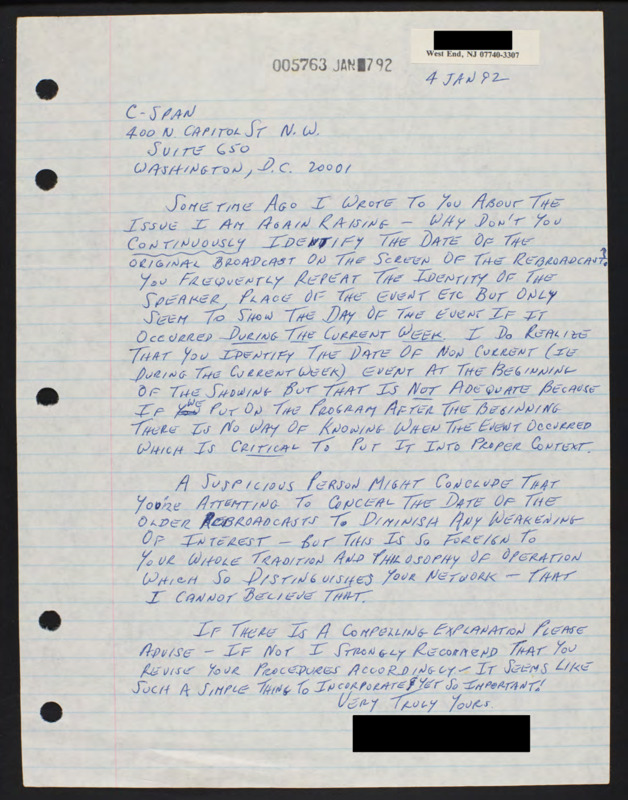 005763 JAN 7 92
West End, NJ 07740-3307
4 JAN 92
C-SPAN
400 N CAPITOL ST N.W.
SUITE 650
WASHINGTON, D.C. 20001
SOMETIME AGO I WROTE TO YOU ABOUT THE
ISSUE I AM AGAIN RAISING – WHY DON'T YOU
CONTINUOUSLY IDENTIFY THE DATE OF THE
ORIGINAL BROADCAST ON THE SCREEN OF THE REBROADCAST?
YOU FREQUENTLY REPEAT THE IDENTITY OF THE
SPEAKER, PLACE OF THE EVENT ETC BUT ONLY
SEEM TO SHOW THE DAY OF THE EVENT IF IT
OCCURRED DURING THE CURRENT WEEK. I DO REALIZE
THAT YOU IDENTIFY THE DATE OF NON CURRENT (IE
DURING THE CURRENT WEEK) EVENT AT THE BEGINNING
OF THE SHOWING BUT THAT IS NOT ADEQUATE BECAUSE
IF WE PUT ON THE PROGRAM AFTER THE BEGINNING
THERE IS NO WAY OF KNOWING WHEN THE EVENT OCCURRED
WHICH IS CRITICAL TO PUT IT INTO PROPER CONTEXT.
A SUSPICIOUS PERSON MIGHT CONCLUDE THAT
YOU'RE ATTEMTING TO CONCEAL THE DATE OF THE
OLDER REBROADCASTS TO DIMINISH ANY WEAKENING
OF INTEREST – BUT THIS IS SO FOREIGN TO
YOUR WHOLE TRADITION AND PHILOSOPHY OF OPERATION
WHICH SO DISTINGUISHES YOUR NETWORK – THAT
I CANNOT BELIEVE THAT.
IF THERE IS A COMPELLING EXPLANATION PLEASE
ADVISE – IF NOT I STRONGLY RECOMEND THAT YOU
REVISE YOUR PROCEDURES ACCORDINGLY – IT SEEMS LIKE
SUCH A SIMPLE THING TO INCORPORATE & YET SO IMPORTANT!
VERY TRULY YOURS.